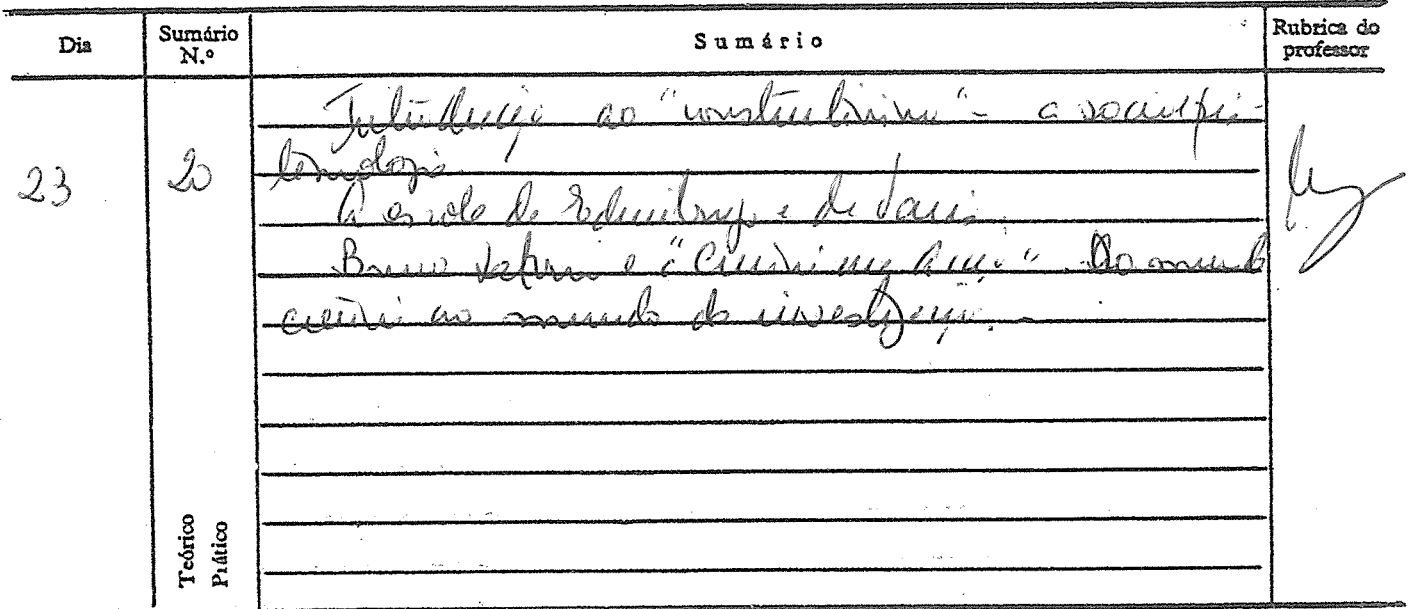 Dia
Sumário N.º
Sumário
Rubrica do professor
23
20
Introdução ao "construtivismo" - a socioepis-
temologia.
A escola de Edimburgo e de Paris.
Bruno Latour e "Ciência em Acção". Do mundo
ciência ao mundo da investigação. -
Teórico
Prático